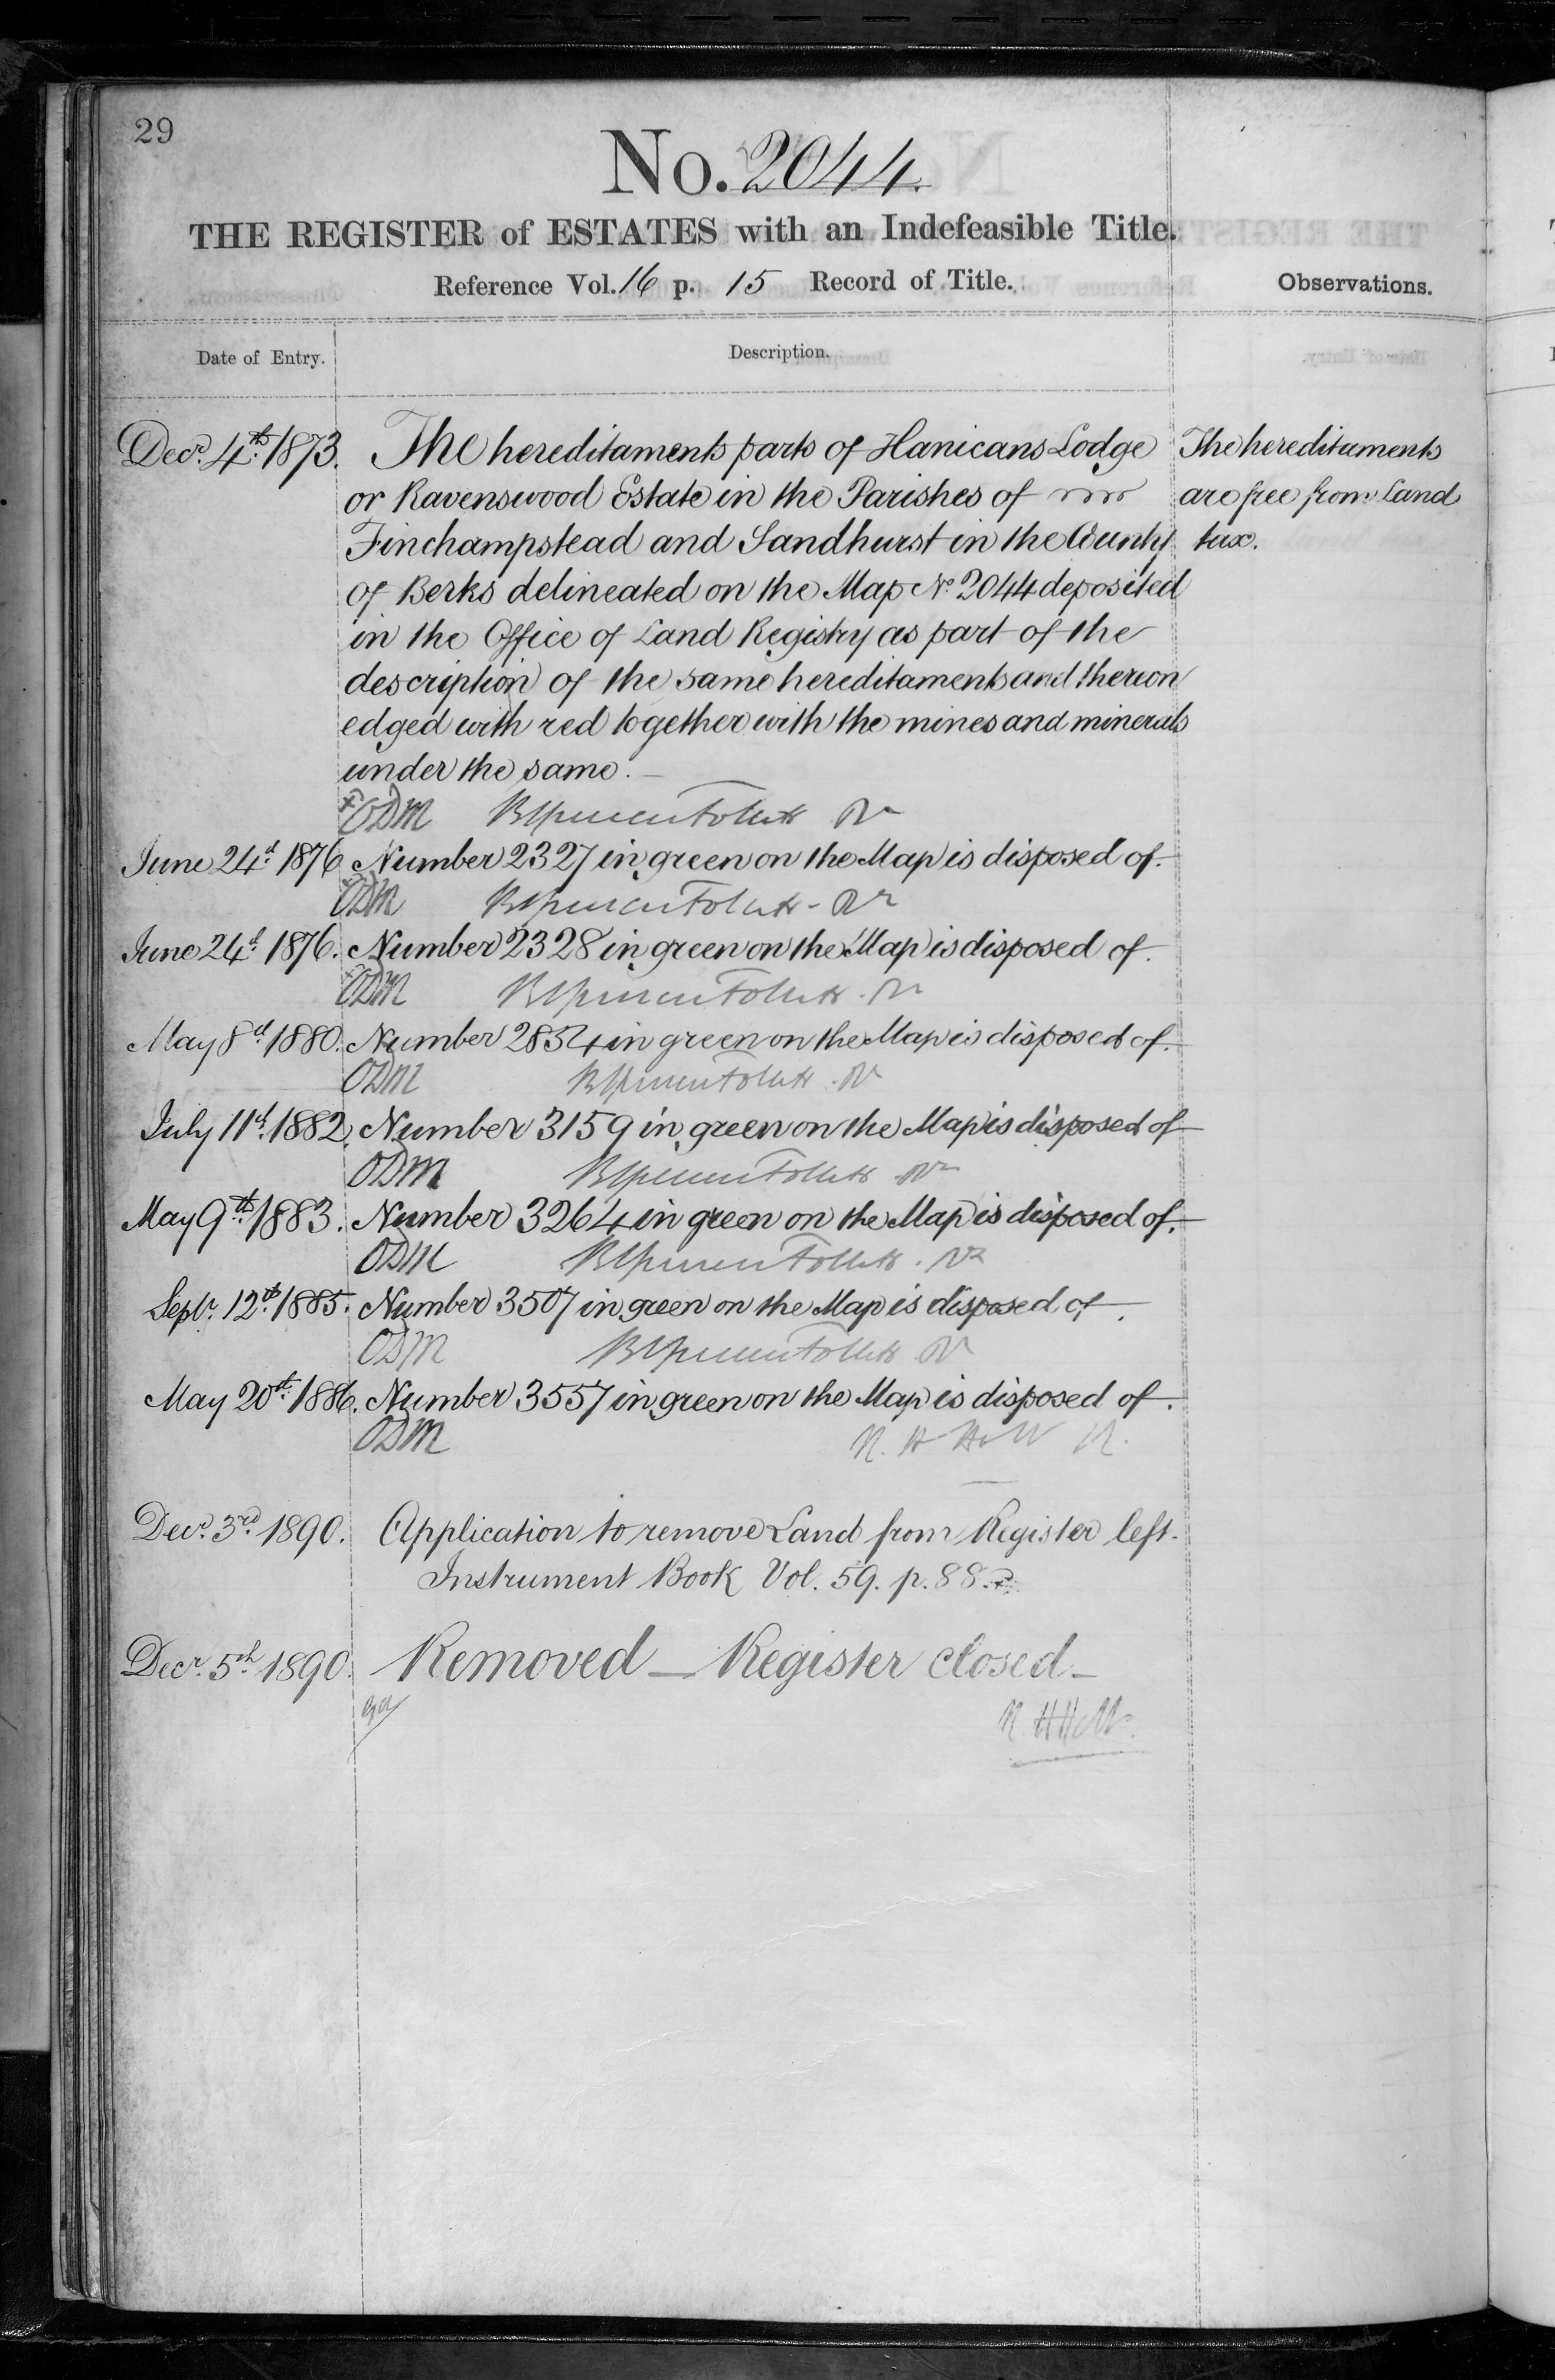 29
No. 2044.
THE REGISTER of ESTATES with an Indefeasible Title.
Reference Vol. 16 p. 15 Record of Title.
Observations.
Date of Entry.
Description.
Decr. 4th. 1873. The hereditaments parts of Hanicans Lodge
or Ravenswood Estate in the Parishes of
Finchampstead and Sandhurst in the County
of Berks delineated on the Map No. 2044 deposited
in the Office of Land Registry as part of the
description of the same hereditaments and thereon
edged with red together with the mines and minerals
under the same.
The hereditaments
are free from Land
tax.
ODM
June 24th. 1876 Number 2327 in green on the Map is disposed of.
ODM
June 24th. 1876. Number 2328 in green on the Map is disposed of.
ODM
May 8th. 1880. Number 2854 in green on the Map is disposed of.
ODM
July 11th. 1882. Number 3159 in green on the Map is disposed of
ODM
May 9th. 1883. Number 3264 in green on the Map is disposed of.
ODM
Septr. 12th. 1885. Number 3507 in green on the Map is disposed of.
ODM
May 20th. 1886. Number 3557 in green on the Map is disposed of.
ODM
Decr. 3rd. 1890. Application to remove Land from Register left.
Instrument Book Vol. 59. p. 88.
Decr. 5th 1890. Removed — Register closed —